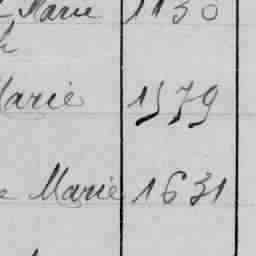 Marie 1130
Marie 1579
Marie 1631